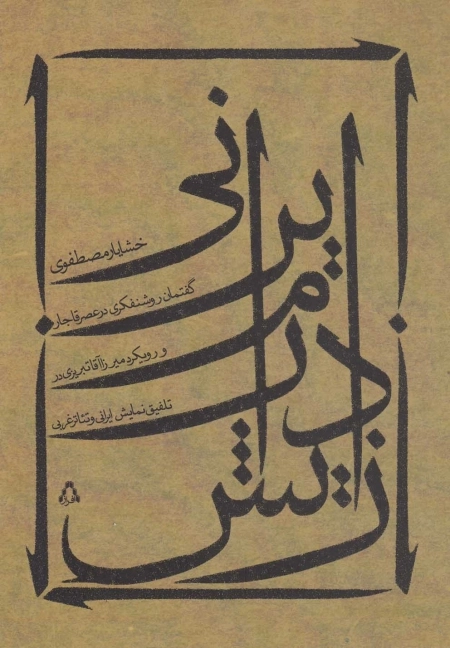 زایش
درام
ایرانی
خشایار مصطفوی
گفتمان روشنفکری در عصر قاجار
و رویکرد میرزاآقا تبریزی در
تلفیق نمایش ایرانی و تئاتر غربی